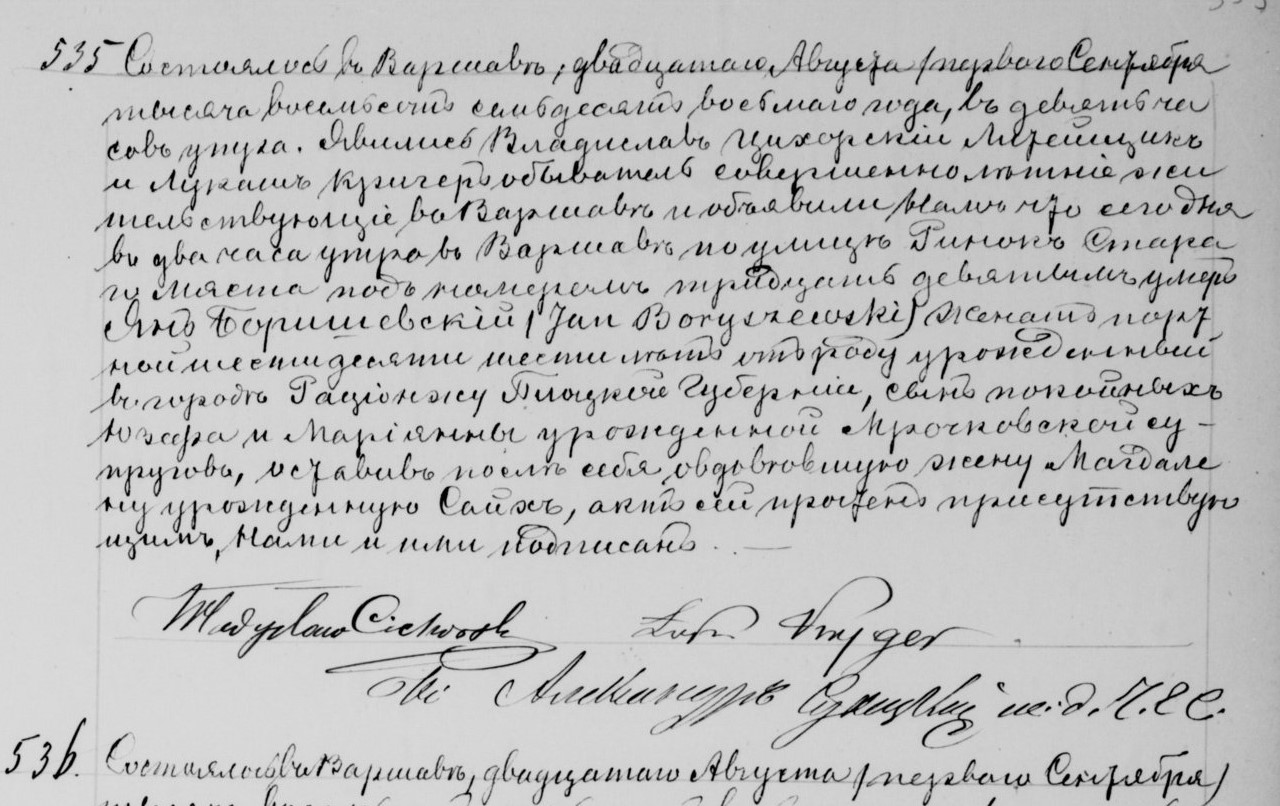 535 Состоялось въ Варшавѣ, двадцатаго Августа /перваго Сентября
тысяча восемьсотъ семьдесятъ восьмаго года, въ девять ча
совъ утра. Явились Владиславъ Цихорскій Литейщикъ
и Лукашъ Кригеръ обыватель совершеннолѣтніе жи
тельствующіе въ Варшавѣ и объявили Намъ что сегодня
въ два часа утра въ Варшавѣ по улицѣ Ринокъ Стара
го Мяста подъ номеромъ тридцать девятымъ умеръ
Янъ Боришевскій /Jan Boryszewski/ женатъ порт
ной шестидесяти шести лѣтъ отъ роду урожденный
въ городѣ Раціонжу Плоцкой Губерніи, сынъ покойныхъ
Юзефа и Маріянны урожденной Мрочковской су-
пруговъ, оставивъ послѣ себя овдовѣвшую жену Магдале
ну урожденную Сайхъ, актъ сей прочтенъ присутствую
щимъ, Нами и ими подписанъ. —
Władysław Cichorsk Kryger
Александръ и. д. Ч. Е. С.
536. Состоялось въ Варшавѣ, двадцатаго Августа /перваго Сентября/